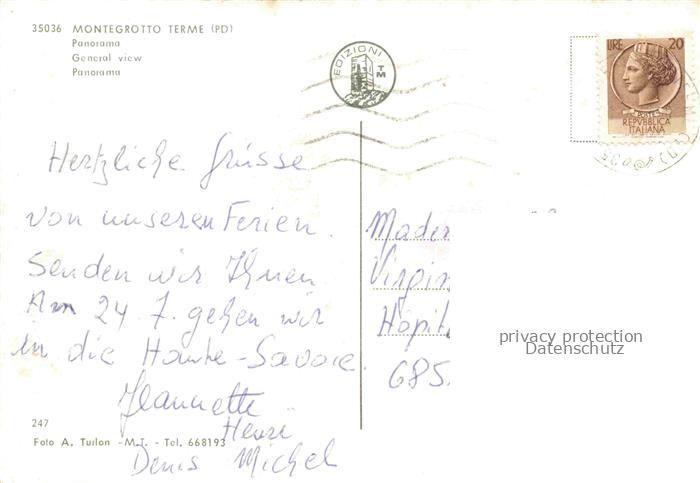 35036 MONTEGROTTO TERME (PD)
Panorama
General view
Panorama
EDIZIONI
TM
LIRE 20
POSTE
REPVBBLICA
ITALIANA
Hertzliche Grüsse
von unseren Ferien.
Senden wir Ihnen
Am 24 7. gehen wir
in die Haute-Savoie.
Jeannette
Henri
Denis Michel
Mader
Virgin
Hôpit
685.
privacy protection
Datenschutz
247
Foto A. Turlon - M.T. - Tel. 668193